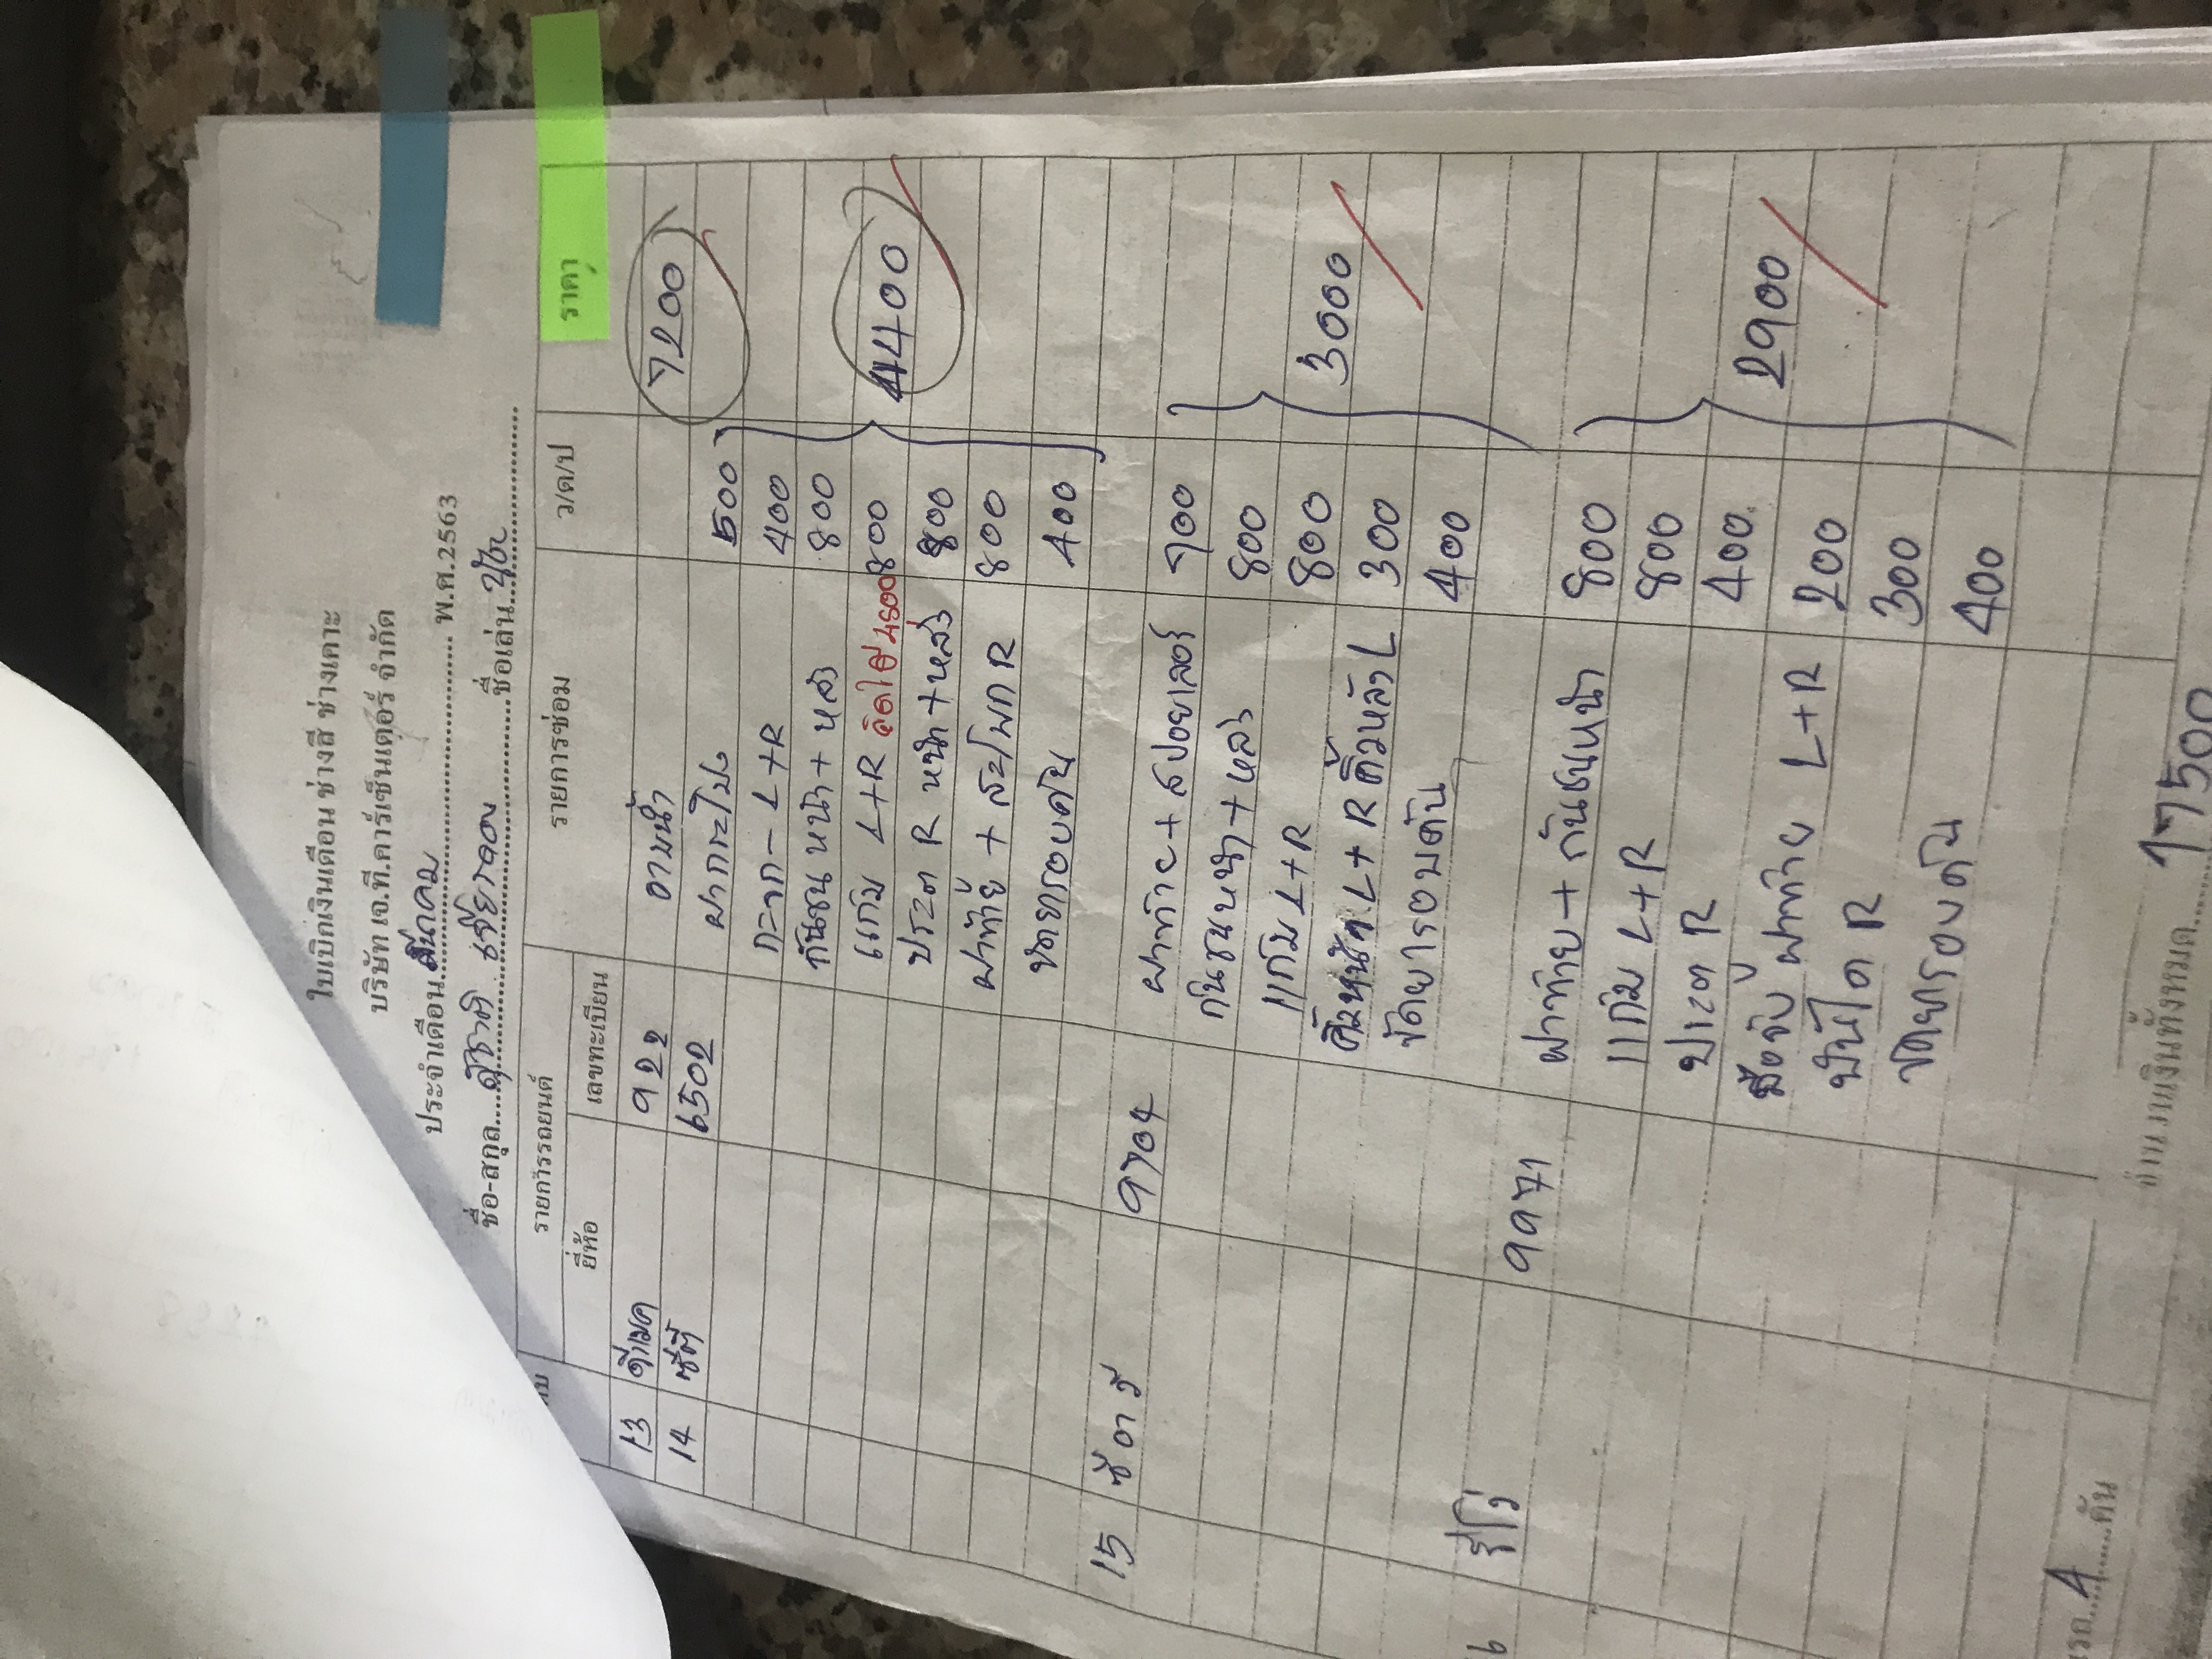 ใบเบิกเงินเดือน ช่างสี ช่างเคาะ
บริษัท เจ.ที.คาร์เซ็นเตอร์ จำกัด
ประจำเดือน มีนาคม พ.ศ.2563
ชื่อ-สกุล สุชาติ ชื่อเล่น
รายการรถยนต์ รายการซ่อม ว/ด/ป ราคา
ยี่ห้อ เลขทะเบียน
13 ดีแมค 922 งามหน้า 7200
14 ซิตี้ 6502 ฝากระโปรง 500
กระจก L+R 400
กันชนหน้า + หลัง 800
แก้ม L+R คิดให้ 4500 800 4400
ประตู R หน้า + หลัง 800
ฝาท้าย + สะโพก R 800
ขัดยารอบคัน 400
15 ซีอาร์ 9704 ฝาท้าย + สปอยเลอร์ 700
กันชนหน้า + หลัง 800
แก้ม L+R 800 3000
คิ้วหน้า L+R คิ้วหลัง L 300
ขัดยารอบคัน 400
รีโว่ 9971 ฝาท้าย + กันชนหน้า 800
แก้ม L+R 800
ประตู R 400 2900
มือจับ ฝาท้าย L+R 200
บันได R 300
ขัดยารอบคัน 400
รถ 4 คัน จำนวนเงินทั้งหมด 17500